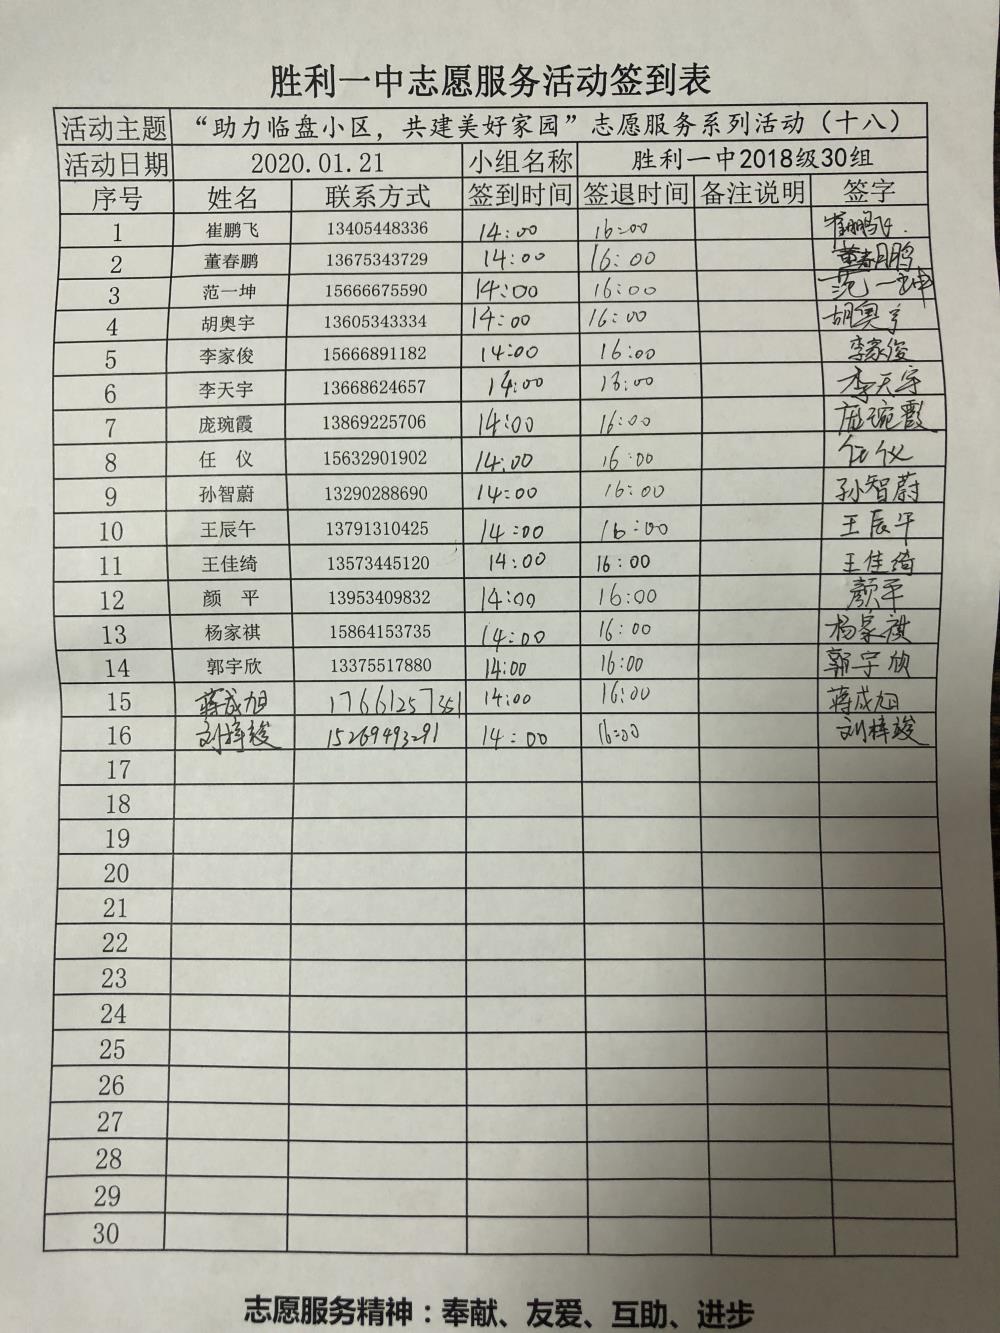 胜利一中志愿服务活动签到表
活动主题 “助力临盘小区，共建美好家园”志愿服务系列活动（十八）
活动日期 2020.01.21 小组名称 胜利一中2018级30组
序号 姓名 联系方式 签到时间 签退时间 备注说明 签字
1 崔鹏飞 13405448336 14:00 16:00 崔鹏飞.
2 董春鹏 13675343729 14:00 16:00 董春鹏
3 范一坤 15666675590 14:00 16:00 范一坤
4 胡奥宇 13605343334 14:00 16:00 胡奥宇
5 李家俊 15666891182 14:00 16:00 李家俊
6 李天宇 13668624657 14:00 16:00 李天宇
7 庞琬霞 13869225706 14:00 16:00 庞琬霞
8 任 仪 15632901902 14:00 16:00 任仪
9 孙智蔚 13290288690 14:00 16:00 孙智蔚
10 王辰午 13791310425 14:00 16:00 王辰午
11 王佳绮 13573445120 14:00 16:00 王佳绮
12 颜 平 13953409832 14:00 16:00 颜平
13 杨家祺 15864153735 14:00 16:00 杨家祺
14 郭宇欣 13375517880 14:00 16:00 郭宇欣
15 蒋成旭 17661257351 14:00 16:00 蒋成旭
16 刘梓骏 15269493291 14:00 16:00 刘梓骏
17
18
19
20
21
22
23
24
25
26
27
28
29
30
志愿服务精神：奉献、友爱、互助、进步